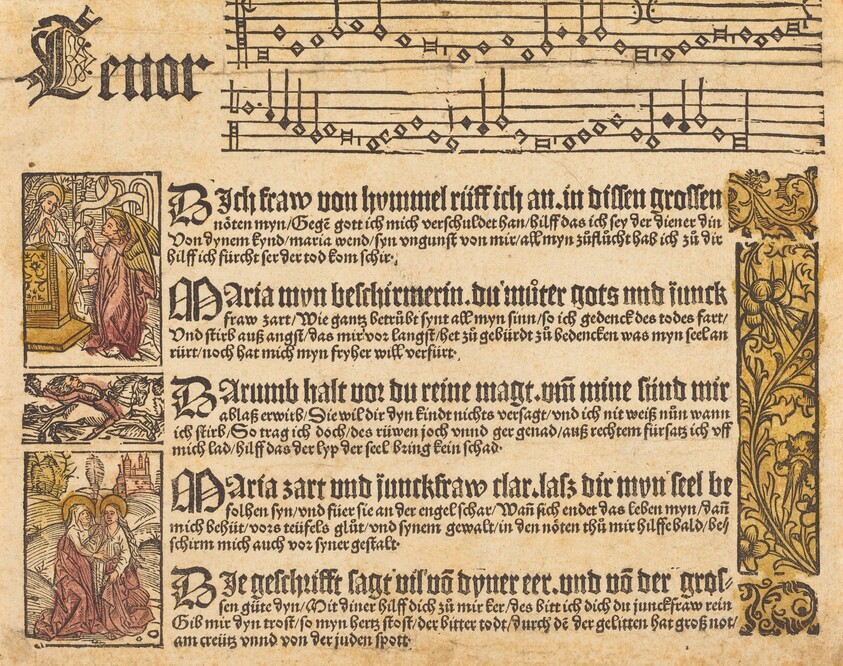 Tenor
DIch fraw von hymmel rüff ich an. in dissen grossen
nöten myn/Gegē gott ich mich verschuldet han/hilff das ich sey der diener din
Von dynem kynd/maria wend/syn vngunst von mir/all myn zůflůcht hab ich zů dir
hilff ich fürcht ser der tod kom schir.
MAria myn beschirmerin. du můter gots und junck
fraw zart/Wie gantz betrübt synt all myn sinn/so ich gedenck des todes fart/
Vnd stirb auß angst/das mir vor langst/het zů gebürdt zů bedencken was myn seel an
rürt/noch hat mich myn fryher will verfürt.
DArumb halt vor du reine magt. vm̄ mine sünd mir
ablaß erwirb/Sie wil dir dyn kindt nichts versagt/vnd ich nit weiß nün wann
ich stirb/So trag ich doch/des rüwen joch vnnd ger genad/auß rechtem fürsatz ich vff
mich lad/hilff das der lyp der seel bring kein schad.
MAria zart und junckfraw clar. lasz dir myn seel be
folhen syn/vnd füer sie an der engel schar/Wañ sich endet das leben myn/dañ
mich behüt/vors teüfels glüt/vnd synem gewalt/in den nöten thů mir hilffe bald/be/
schirm mich auch vor syner gestalt.
DIe geschrifft sagt vil vō dyner eer. und vō der gros-
sen güte dyn/Mit diner hilff dich zů mir ker/des bitt ich dich du junckfraw rein
Gib mir dyn trost/so myn hertz stost/der bitter todt/durch dē der gelitten hat groß not/
am creütz vnnd von der juden spott.